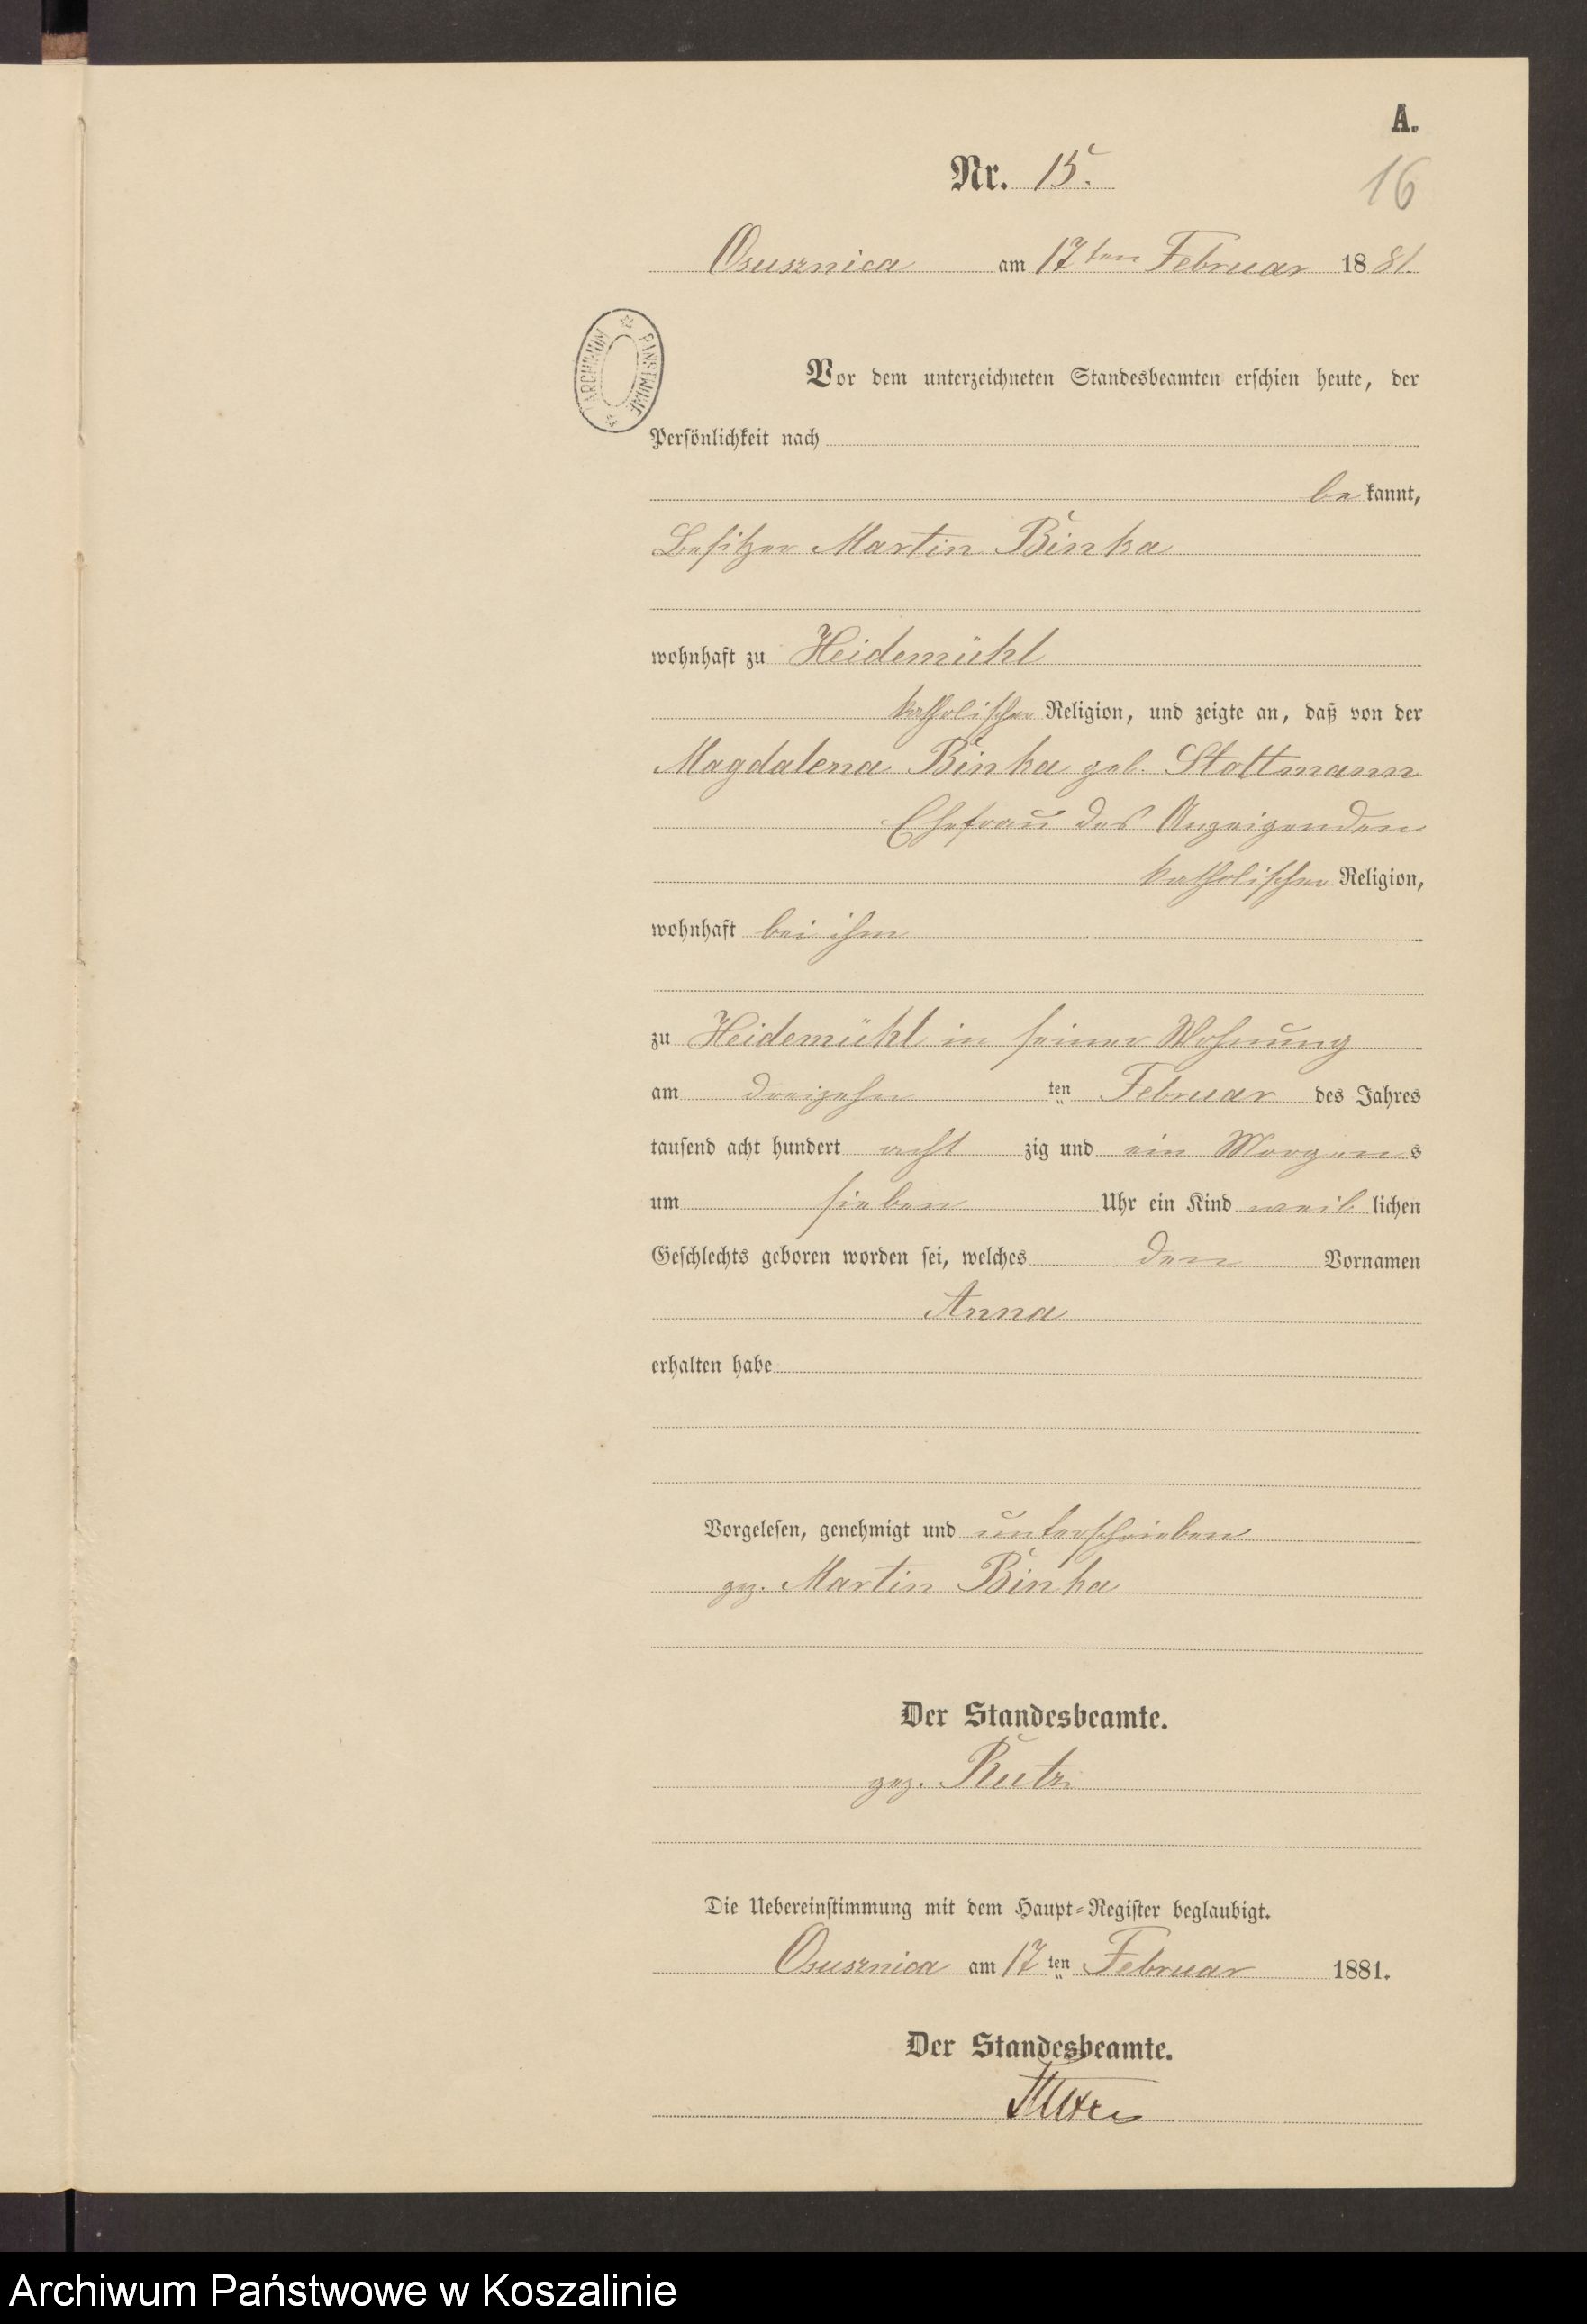 A.
Nr. 15.
16
Osusznica am 17ten Februar 1881.
ARCHIWUM PAŃSTWOWE
Vor dem unterzeichneten Standesbeamten erschien heute, der
Persönlichkeit nach
bekannt,
Besitzer Martin Binka
wohnhaft zu Heidemühl
katholischer Religion, und zeigte an, daß von der
Magdalena Binka geb. Stoltmann
Ehefrau des Anzeigenden
katholischer Religion,
wohnhaft bei ihm
zu Heidemühl in seiner Wohnung
am dreizehn ten Februar des Jahres
tausend acht hundert acht zig und ein Morgens
um sieben Uhr ein Kind weiblichen
Geschlechts geboren worden sei, welches den Vornamen
Anna
erhalten habe
Vorgelesen, genehmigt und unterschrieben
gez. Martin Binka
Der Standesbeamte.
gez. Rutz
Die Uebereinstimmung mit dem Haupt-Register beglaubigt.
Osusznica am 17ten Februar 1881.
Der Standesbeamte.
Rutz
Archiwum Państwowe w Koszalinie